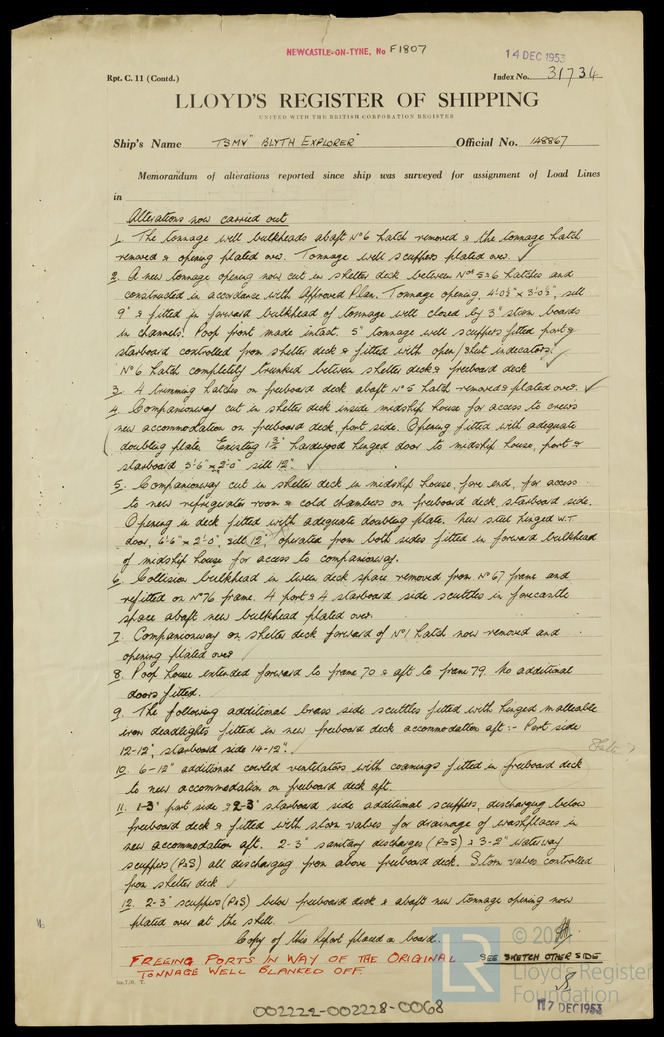 NEWCASTLE-ON-TYNE, No F1807
14 DEC 1953
Rpt. C. 11 (Contd.)
Index No. 31734
LLOYD'S REGISTER OF SHIPPING
UNITED WITH THE BRITISH CORPORATION REGISTER
Ship's Name TSMV "BLYTH EXPLORER" Official No. 148867
Memorandum of alterations reported since ship was surveyed for assignment of Load Lines
in
Alterations now carried out
1. The tonnage well bulkheads abaft Nº6 hatch removed & the tonnage hatch
removed & opening plated over. Tonnage well scuppers plated over. ✓
2. A new tonnage opening now cut in shelter deck between Nos 5&6 hatches and
constructed in accordance with Approved Plan. Tonnage opening 4'-0½" x 3'-0½", sill
9" & fitted in forward bulkhead of tonnage well closed by 3" storm boards
in channels. Poop front made intact. 5" tonnage well scuppers fitted port &
starboard controlled from shelter deck & fitted with open/shut indicators. ✓
Nº6 hatch completely trunked between shelter deck & freeboard deck
3. 4 trimming hatches on freeboard deck abaft Nº5 hatch removed & plated over. ✓
4. Companionway cut in shelter deck inside midship house for access to crew's
new accommodation on freeboard deck, port side. Opening fitted with adequate
doubling plate. Existing 1¾" hardwood hinged door to midship house, port &
starboard 3'-6" x 2'-0" sill 12". ✓
5. Companionway cut in shelter deck in midship house, fore end, for access
to new refrigerator room & cold chambers on freeboard deck, starboard side.
Opening in deck fitted with adequate doubling plate. New steel hinged W.T.
door, 4'-6" x 2'-0", sill 12", operated from both sides fitted in forward bulkhead
of midship house for access to companionway.
6. Collision bulkhead in tween deck space removed from Nº67 frame and
refitted on Nº76 frame. 4 port & 4 starboard side scuttles in forecastle
space abaft new bulkhead plated over.
7. Companionway on shelter deck forward of Nº1 hatch now removed and
opening plated over
8. Poop house extended forward to frame 70 & aft to frame 79. No additional
doors fitted.
9. The following additional brass side scuttles fitted with hinged malleable
iron deadlights fitted in new freeboard deck accommodation aft :- Port side
12-12", starboard side 14-12".
10. 6-12" additional cowled ventilators with coamings fitted in freeboard deck
to new accommodation on freeboard deck aft.
11. 1-3" port side & 2-3" starboard side additional scuppers, discharging below
freeboard deck & fitted with storm valves for drainage of washplaces in
new accommodation aft. 2-3" sanitary discharges (P&S) & 3-2" waterway
scuppers (P&S) all discharging from above freeboard deck. Storm valves controlled
from shelter deck
12. 2-3" scuppers (P&S) below freeboard deck & abaft new tonnage opening now
plated over at the shell.
Copy of this Report placed on board.
FREEING PORTS IN WAY OF THE ORIGINAL
TONNAGE WELL BLANKED OFF.
SEE SKETCH OTHER SIDE
LR
Lloyd's Register
Foundation
17 DEC 1953
002222-002228-0068